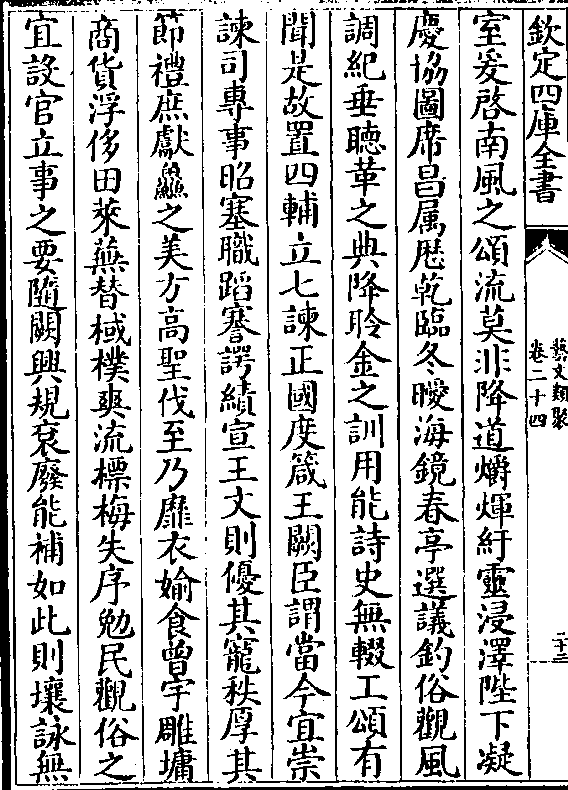 欽定四庫全書
藝文類聚
卷二十四
二十三
室爰啓南風之頌流莫非降道爝煇紆靈浸澤陛下凝
慶協圖席昌属厯乾臨冬曖海鏡春亭選議釣俗觀風
調紀垂聽革之典降聆金之訓用能詩史無輟工頌有
聞是故置四輔立七諫正國度箴王闕臣謂當今宜崇
諫司專事昭塞職蹈謇諤績宣王文則優其寵秩厚其
節禮庶獻鱻之美方高聖伐至乃靡衣婾食曾宇雕墉
商貨浮侈田萊蕪替棫樸爽流標梅失序勉民觀俗之
宜設官立事之要隨闕興規衮廢能補如此則壤詠無